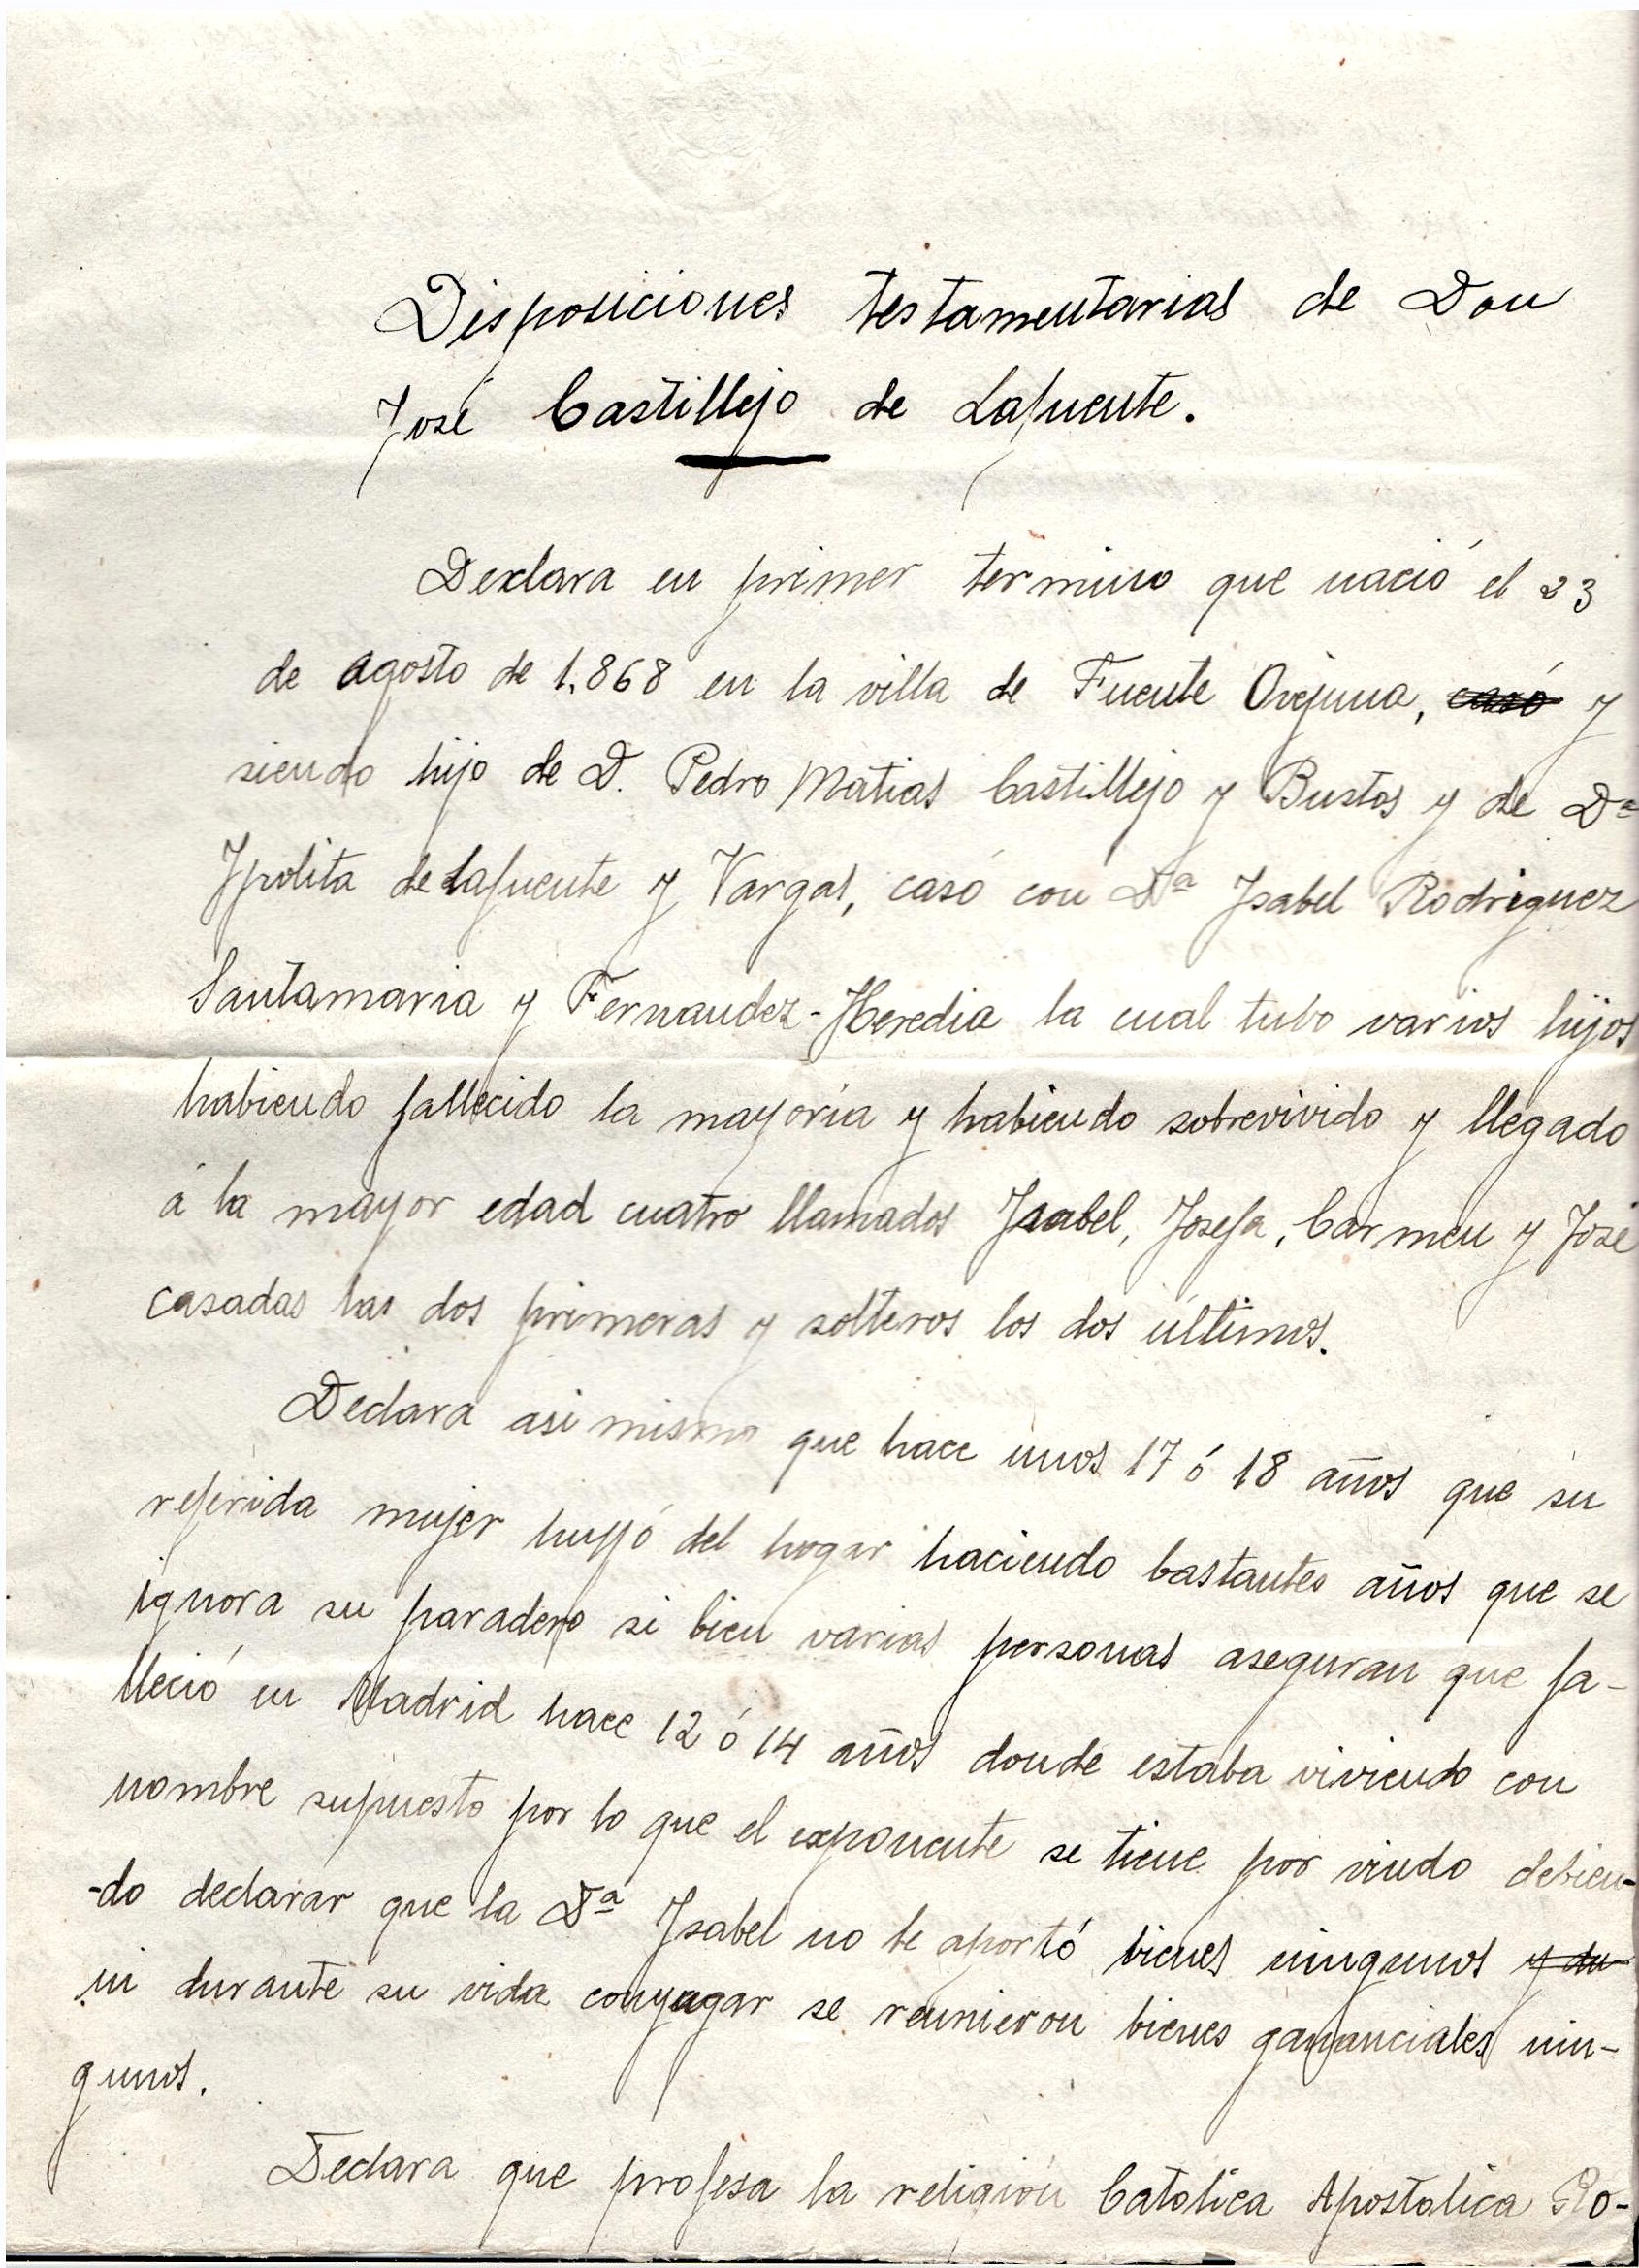 Disposiciones testamentarias de Don
José Castillejo de Lafuente.
Declara en primer termino que nació el 23
de agosto de 1.868 en la villa de Fuente Ovejuna, casó y
siendo hijo de D. Pedro Matias Castillejo y Bustos y de Dª
Ypolita de Lafuente y Vargas, casó con Dª Ysabel Rodriguez
Santamaria y Fernandez-Heredia la cual tubo varios hijos
habiendo fallecido la mayoría y habiendo sobrevivido y llegado
á la mayor edad cuatro llamados Ysabel, Josefa, Carmen y José
casadas las dos primeras y solteros los dos últimos.
Declara asi mismo que hace unos 17 ó 18 años que su
referida mujer huyó del hogar haciendo bastantes años que se
ignora su paradero si bien varias personas aseguran que fa-
lleció en Madrid hace 12 ó 14 años donde estaba viviendo con
nombre supuesto por lo que el exponente se tiene por viudo debien-
-do declarar que la Dª Ysabel no le aportó bienes ningunos y du
ni durante su vida conyugar se reunieron bienes gananciales nin-
gunos.
Declara que profesa la religión Catolica Apostolica Ro-